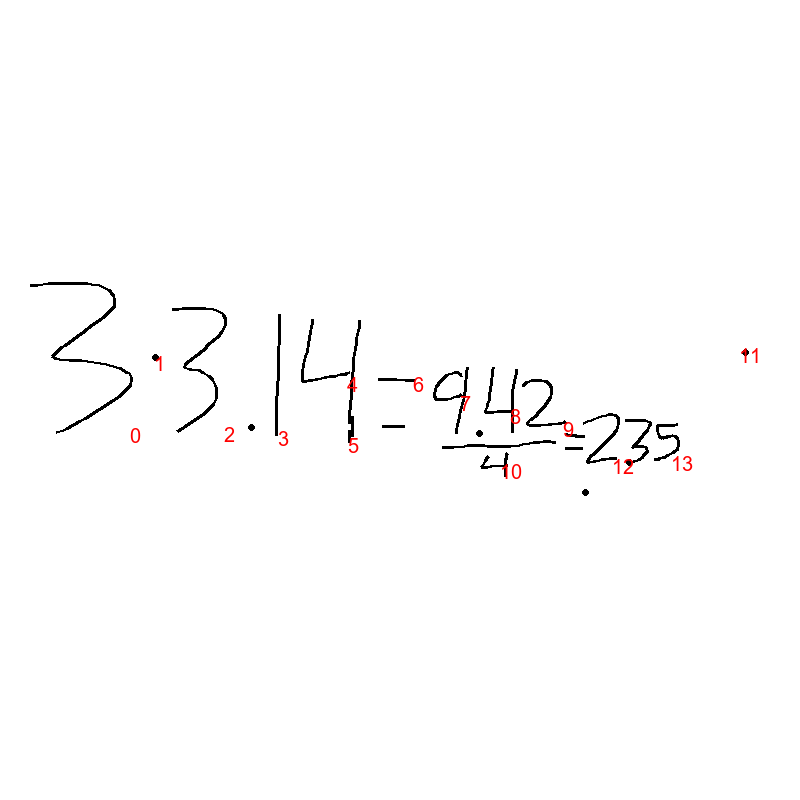 3·3.14=9.42/4=2.35
0 1 2 3 4 5 6 7 8 9 10 11 12 13